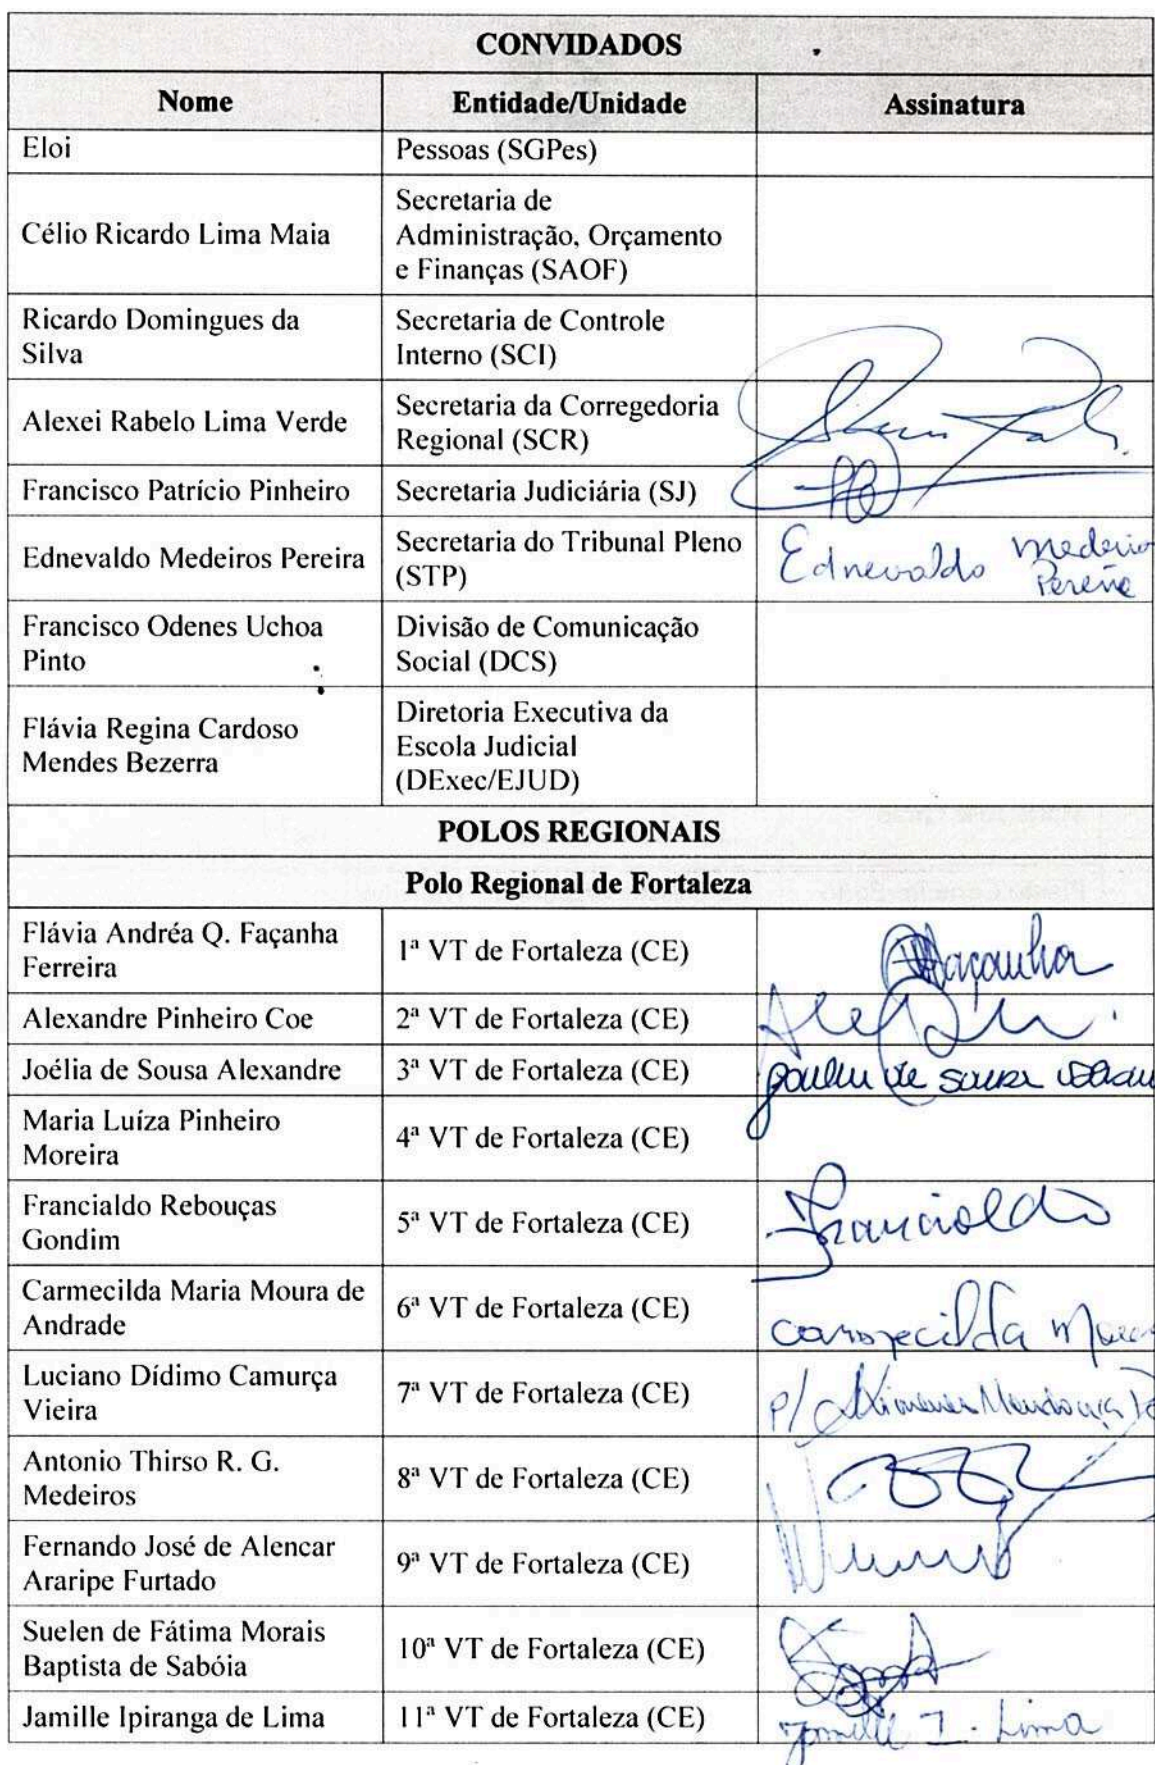 CONVIDADOS
Nome Entidade/Unidade Assinatura
Eloi Pessoas (SGPes)
Célio Ricardo Lima Maia
Secretaria de
Administração, Orçamento
e Finanças (SAOF)
Ricardo Domingues da
Silva
Secretaria de Controle
Interno (SCI)
Alexei Rabelo Lima Verde
Secretaria da Corregedoria
Regional (SCR)
Francisco Patrício Pinheiro Secretaria Judiciária (SJ)
Ednevaldo Medeiros Pereira
Secretaria do Tribunal Pleno
(STP)
Ednevaldo Medeiros
Pereira
Francisco Odenes Uchoa
Pinto
Divisão de Comunicação
Social (DCS)
Flávia Regina Cardoso
Mendes Bezerra
Diretoria Executiva da
Escola Judicial
(DExec/EJUD)
POLOS REGIONAIS
Polo Regional de Fortaleza
Flávia Andréa Q. Façanha
Ferreira
1ª VT de Fortaleza (CE)
Façanha
Alexandre Pinheiro Coe 2ª VT de Fortaleza (CE)
Joélia de Sousa Alexandre 3ª VT de Fortaleza (CE) de Sousa
Maria Luíza Pinheiro
Moreira
4ª VT de Fortaleza (CE)
Francialdo Rebouças
Gondim
5ª VT de Fortaleza (CE)
Francialdo
Carmecilda Maria Moura de
Andrade
6ª VT de Fortaleza (CE)
Carmecilda
Luciano Dídimo Camurça
Vieira
7ª VT de Fortaleza (CE)
p/ Ximenes Mendonça
Antonio Thirso R. G.
Medeiros
8ª VT de Fortaleza (CE)
Fernando José de Alencar
Araripe Furtado
9ª VT de Fortaleza (CE)
Suelen de Fátima Morais
Baptista de Sabóia
10ª VT de Fortaleza (CE)
Jamille Ipiranga de Lima 11ª VT de Fortaleza (CE) Jamille I. Lima